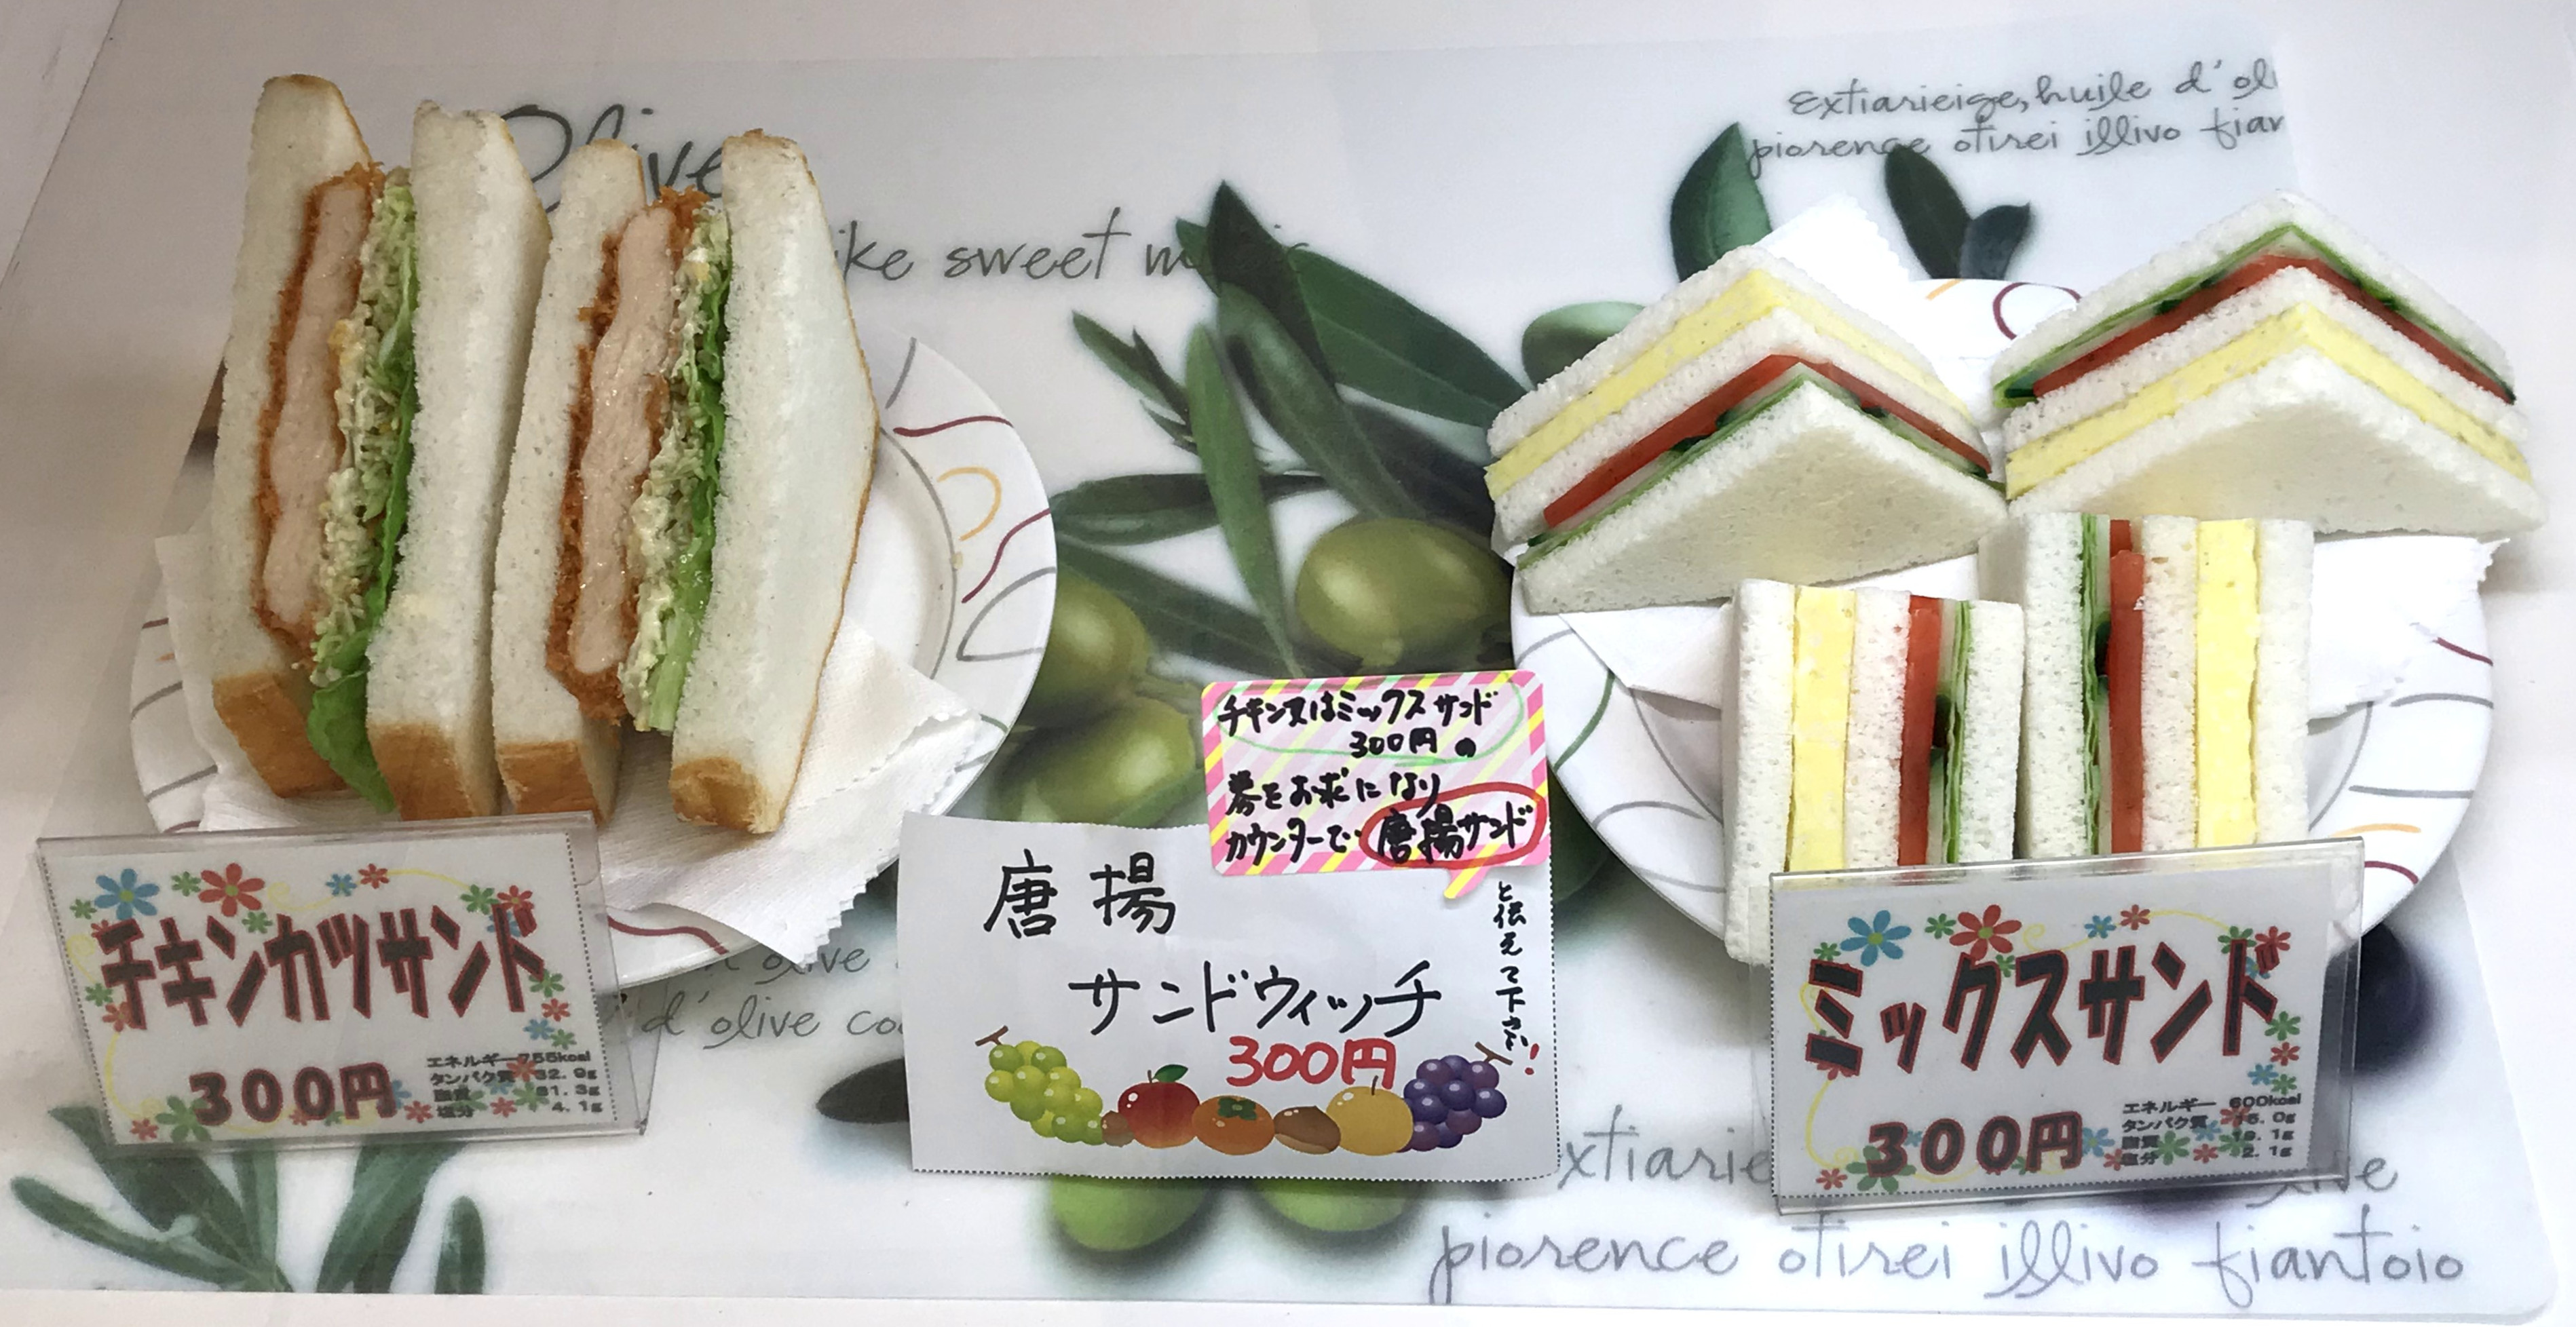 Olive
ike sweet
Extiarieige, huile d'oli
piorence otirei illivo fian
チキンカツサンド
300円
エネルギー 755kcal
タンパク質 32.9g
脂質 31.3g
塩分 4.1g
チキン又はミックスサンド
300円の
券をお求になり
カウンターで唐揚サンド
と伝えて下さい!
唐揚
サンドウィッチ
300円
ミックスサンド
300円
エネルギー 600kcal
タンパク質
脂質
塩分 2.1g
olive
d'olive
xtiarie
piorence otirei illivo fiantoio